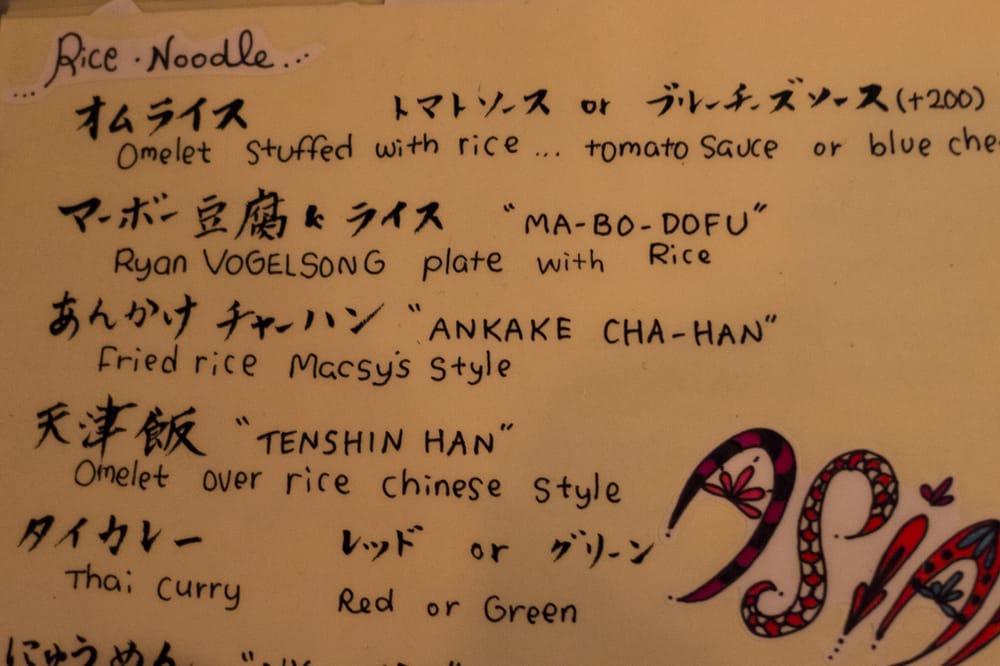 Rice・Noodle...
オムライス トマトソース or ブルーチーズソース(+200)
Omelet stuffed with rice ... tomato sauce or blue che
マーボー豆腐 & ライス "MA-BO-DOFU"
Ryan VOGELSONG plate with Rice
あんかけ チャーハン "ANKAKE CHA-HAN"
Fried rice Macsy's style
天津飯 "TENSHIN HAN"
Omelet over rice chinese style
タイカレー レッド or グリーン
Thai curry Red or Green
ASIA
にゅうめん